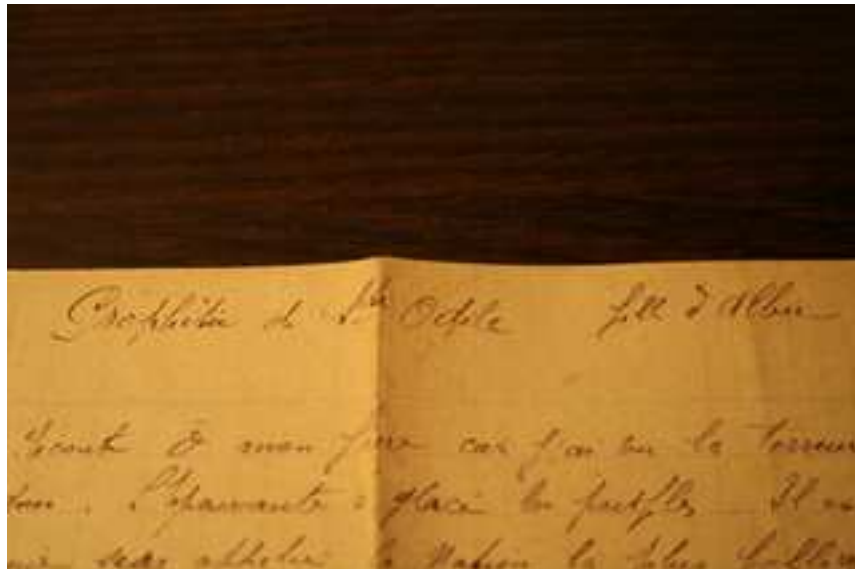 Prophétie de Ste Odile fille d'Albu
Ecoute ô mon frère car j'ai vu la terreur
L'épouvante a glacé les peuples Il
sera appelée la Nation la plus